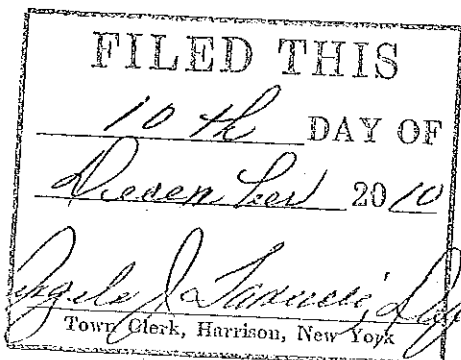 FILED THIS
10th DAY OF
December 2010
Angela J.
Town Clerk, Harrison, New York